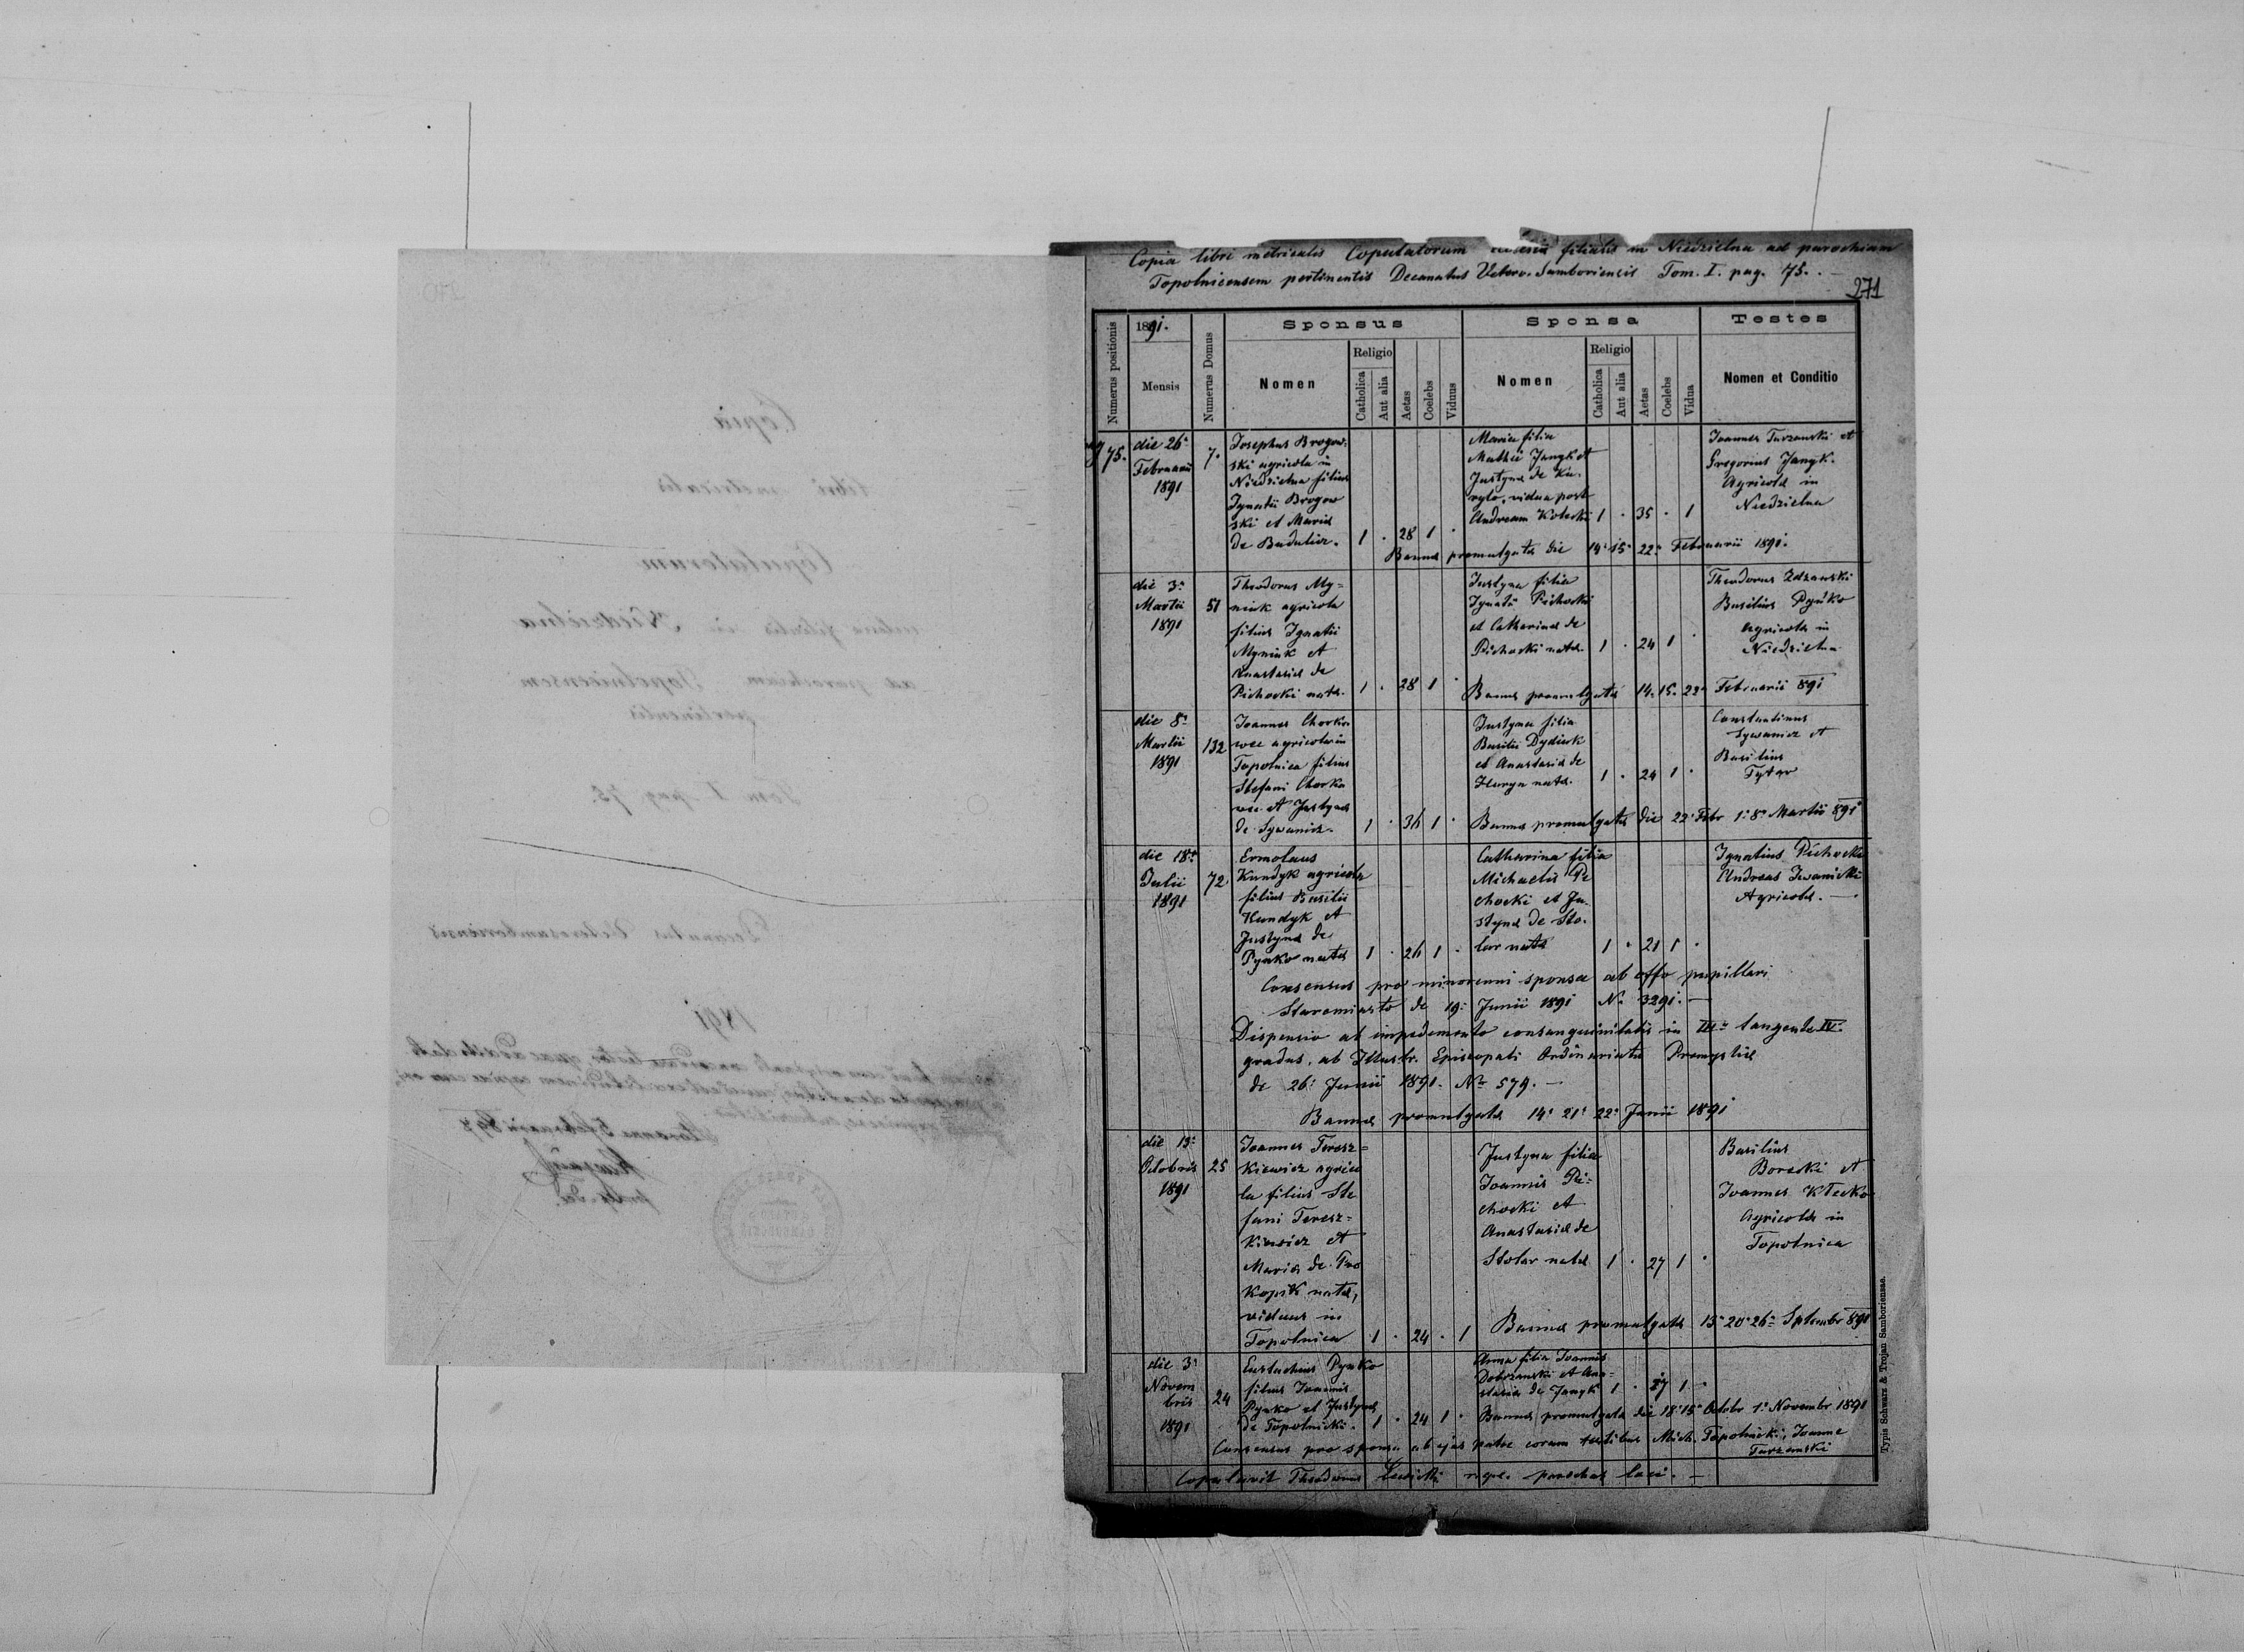 Copia libri metricalis Copulatorum filialis in Niedzielna ad parochiam
Topolnicensem pertinentis Decanatus Vetero-Samboriensis Tom. I. pag. 75.
271
Numerus positionis
1891.
Mensis
Numerus Domus
Sponsus
Nomen
Religio
Catholica
Aut alia
Aetas
Coelebs
Viduus
Sponsa
Nomen
Religio
Catholica
Aut alia
Aetas
Coelebs
Vidua
Testes
Nomen et Conditio
75.
die 26a
Februarii
1891
7.
Josephus Brogow-
ski agricola in
Niedzielna filius
Ignatii Brogow
ski et Maria
de
1 . 28 1 .
Maria filia
Mathei Jangk et
Justyna de Ku-
ryło, vidua post
Andream Kotecki 1 . 35 . 1
Joannes Turzanski et
Gregorius Jangk.
Agricola in
Niedzielna
Banna promulgata die 14a 15a 22a Februarii 1891.
die 3a
Martii
1891
51
Theodorus My=
niuk agricola
filius Ignatii
Myniuk et
Anastasia de
Pichocki nata. 1 . 28 1 .
Justyna filia
Ignatii Pichocki
et Catharina de
Pichocki nata. 1 . 24 1 .
Theodorus
Basilius Pynko
Agricola in
Niedzielna
Banna promulgata 14. 15. 22a Februarii 891
die 8a
Martii
1891
132
Joannes Chorka
wec agricola in
Topolnica filius
Stefani Chorka
wec et Justyna
de Sywanicz. 1 . 34 1 .
Justyna filia
Basilii Dydiuk
et Anastasia de
nata. 1 . 24 1 .
Constantinus
Sywanicz et
Basilius
Tytar
Banna promulgata die 22a Febr 1a 8a Martii 891
die 18a
Julii
1891
72
Ermolaus
Kundyk agricola
filius Basilii
Kundyk et
Justyna de
Pynko nata 1 . 24 1 .
Catharina filia
Michaelis Pi
chocki et Ju-
styna de Sto-
lar nata 1 . 21 1 .
Ignatius Pichocki
Andreas Iwanicki
Agricola. —
Consensus pro minorenni sponsa ab offo pupillari
Staromiasto de 19a Junii 1891 No 3291. —
Dispensio ab impedimento consanguinitatis in III. tangente IV.
gradus, ab Illustr. Episcopali Ordinariatu Premysliae
de 26a Junii 1891. No 579. —
Banna promulgata 14a 21a 22a Junii 1891
die 13a
Octobris
1891
25
Joannes Teresz=
kiewicz agrico
la filius Ste
fani Teresz=
kiewicz et
Maria de Pro
kopik nata,
viduus in
Topolnica 1 . 24 . 1
Justyna filia
Joannis Pi=
chocki et
Anastasia de
Stolar nata 1 . 27 1 .
Basilius
Borecki et
Joannes Klecko
Agricola in
Topolnica
Banna promulgata 13a 20a 26a Septembr 891
die 3a
Novem
bris
1891
24
Eustachius Pynko
filius Joannis
Pynko et Justyna
de Topolnicki. 1 . 24 1 .
Anna filia Joannis
Dobrzanski et Ana=
stasia de Jangk 1 . 27 1 .
Banna promulgata die 18a Octobr 1a Novembr 1891
Consensus pro sponsa ab ejus patre coram testibus Mich. Topolnicki, Joanne
Turzanski
Copulavit Theodorus parochus loci. —
Typis Schwarz & Trojan Samboriensae.
Copia
libri metricalis
Copulatorum
filialis in Niedzielna
ad parochiam Topolnicensem
pertinentis
Tom I pag 75.
Decanatus Veterosamboriensis
1891